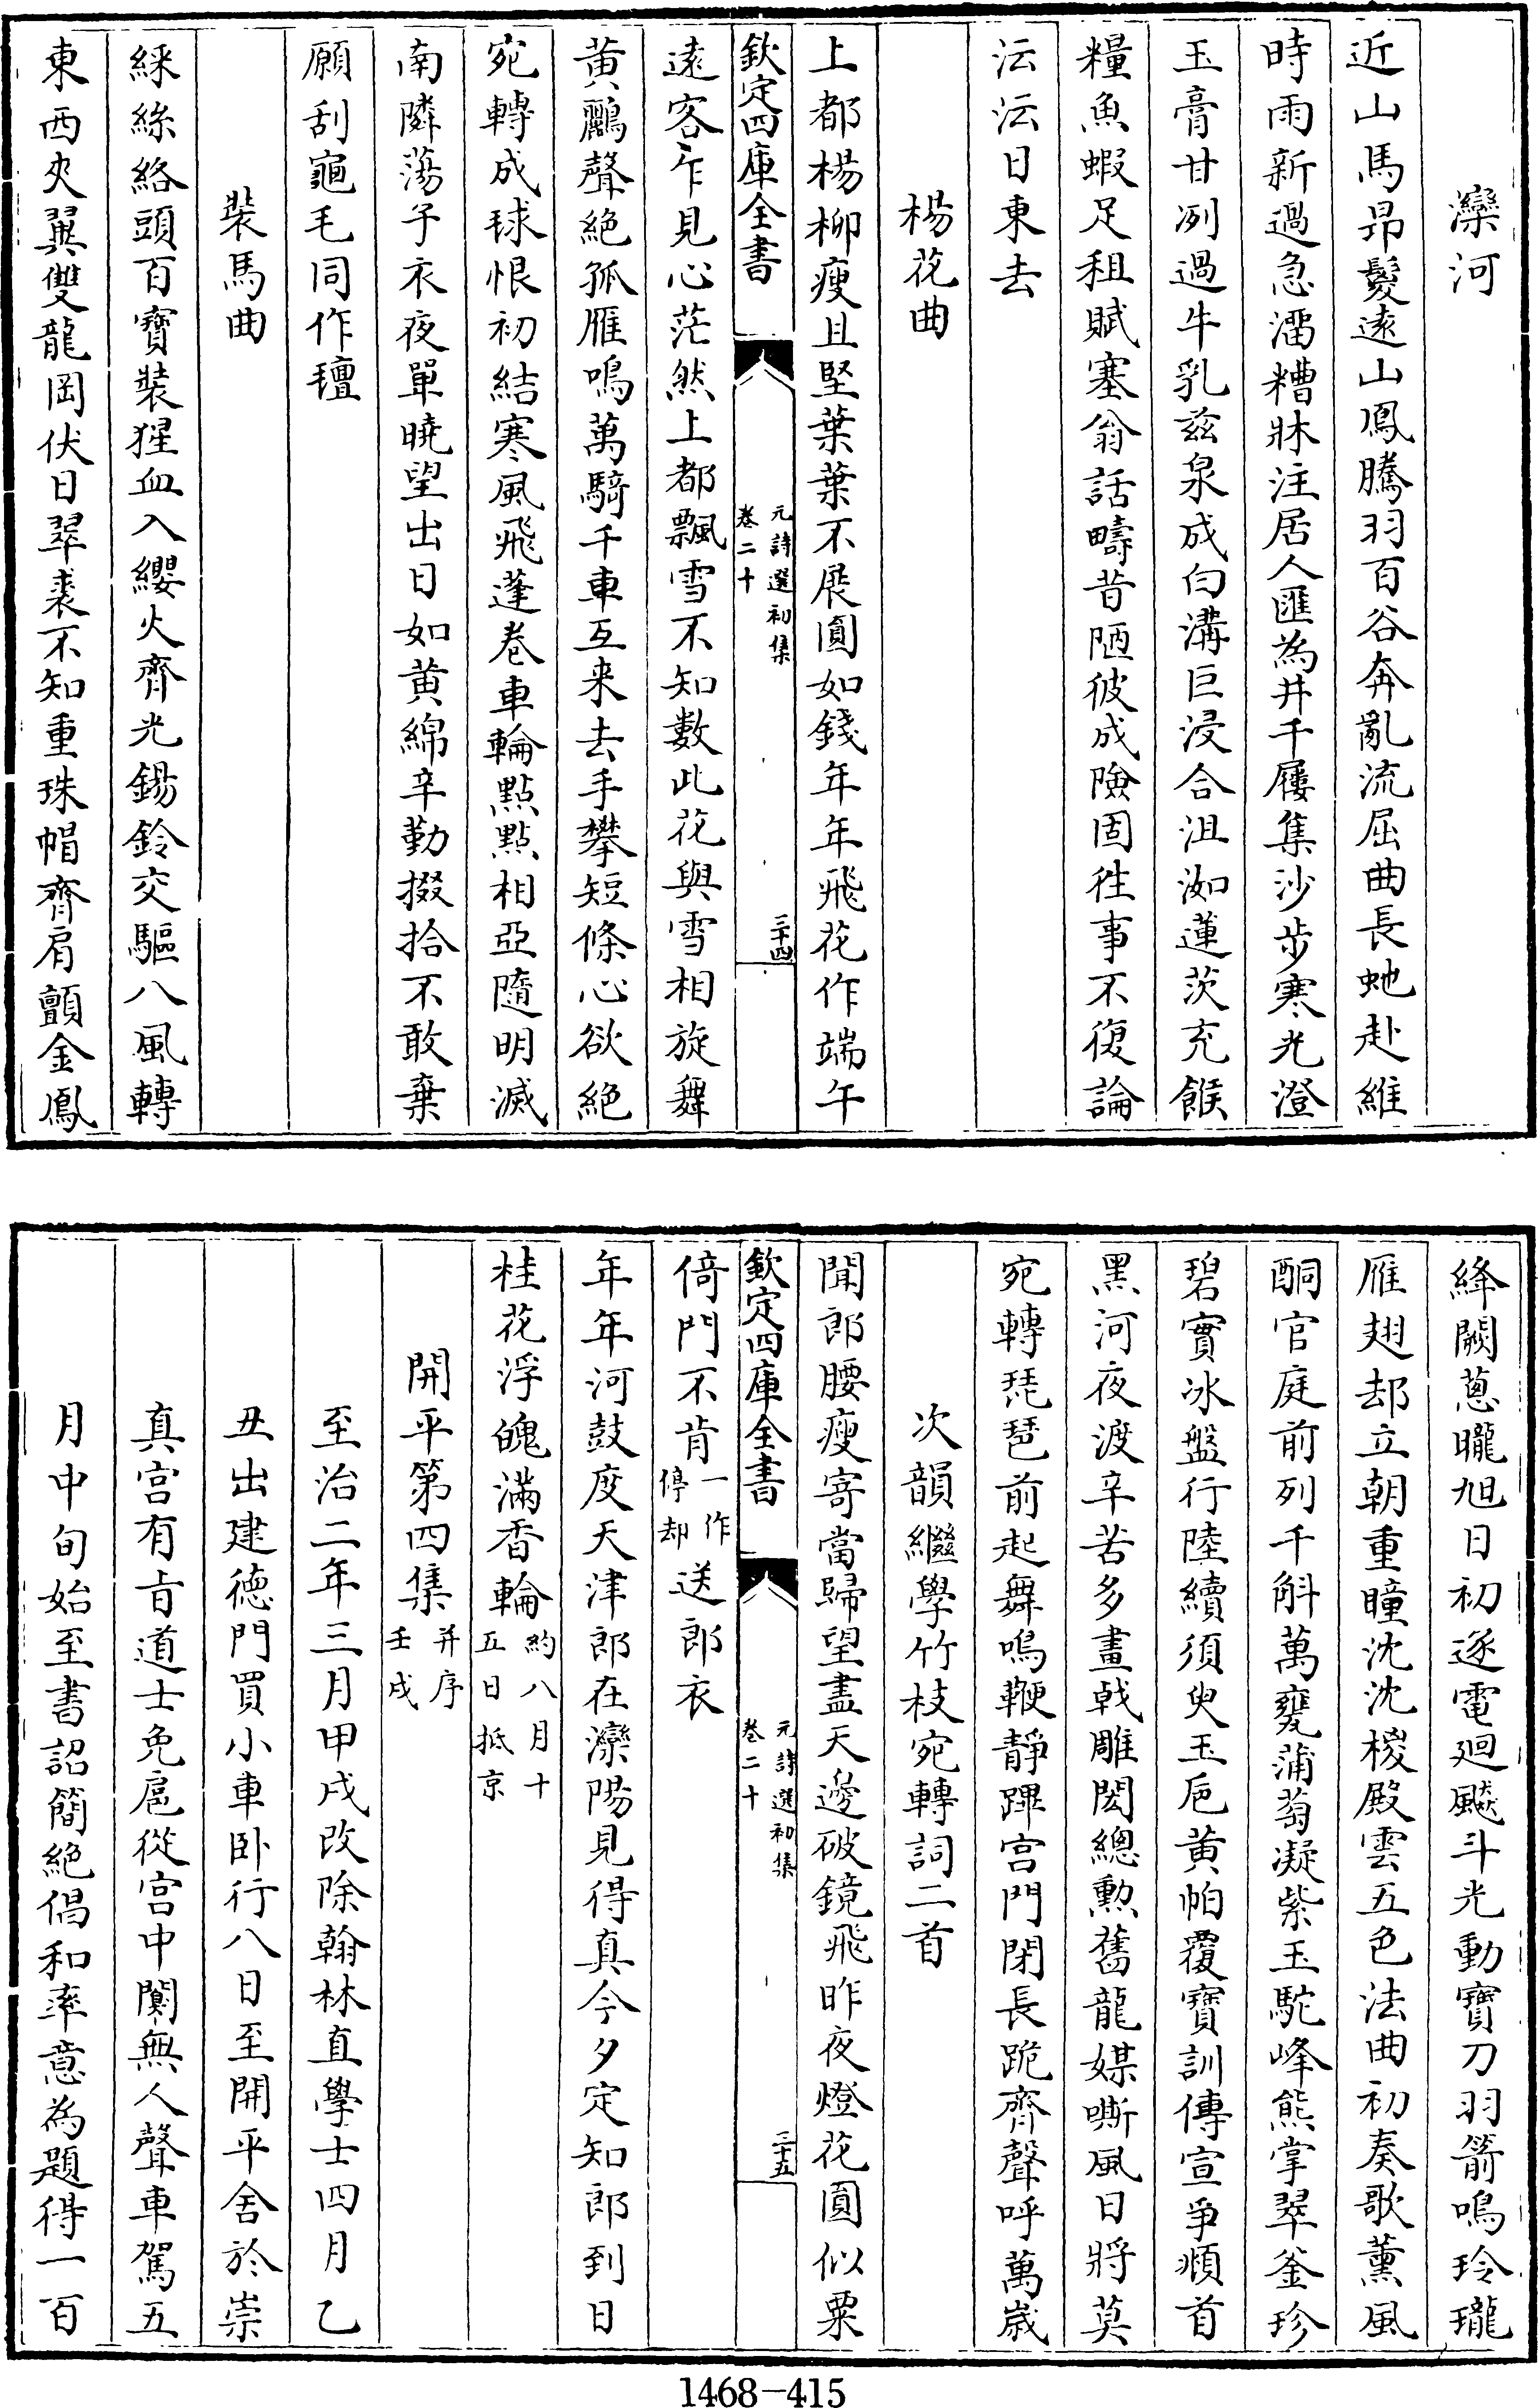 灤河
近山馬昂鬉遠山鳳騰羽百谷奔亂流屈曲長虵赴維
時雨新過急溜糟牀注居人匯為井千屨集沙步寒光澄
玉膏甘冽過牛乳兹泉成白溝巨浸合沮洳蓮茨充餱
糧魚蝦足租賦塞翁話疇昔陋彼成險固徃事不復論
沄沄日東去
楊花曲
上都楊柳瘦且堅葉葉不展圓如錢年年飛花作端午
欽定四庫全書
元詩選初集
卷二十
三十四
遠客乍見心茫然上都飄雪不知數此花與雪相旋舞
黃鸝聲絶孤雁鳴萬騎千車互来去手攀短條心欲絶
宛轉成毬恨初結寒風飛蓬卷車輪點點相亞隨明滅
南隣蕩子衣夜單曉望出日如黃綿辛勤掇拾不敢棄
願刮龜毛同作氊
裝馬曲
綵絲絡頭百寶裝猩血入纓火齊光錫鈴交驅八風轉
東西夾翼雙龍岡伏日翠裘不知重珠帽齊肩顫金鳳
絳闕蔥曨旭日初逐電廻飈斗光動寶刀羽箭鳴玲瓏
雁翅却立朝重瞳沈沈椶殿雲五色法曲初奏歌薰風
酮官庭前列千斛萬甕蒲萄凝紫玉駝峰熊掌翠釜珍
碧實冰盤行陸續須臾玉巵黃帕覆寶訓傳宣爭頫首
黑河夜渡辛苦多畫戟雕閎總勲舊龍媒嘶風日將莫
宛轉琵琶前起舞鳴鞭靜蹕宮門閉長跪齊聲呼萬歲
次韻繼學竹枝宛轉詞二首
聞郎腰瘦寄當歸望盡天邊破鏡飛昨夜燈花圓似粟
欽定四庫全書
元詩選初集
卷二十
三十五
倚門不肯一作停却送郎衣
年年河鼓度天津郎在灤陽見得真今夕定知郎到日
桂花浮魄滿香輪約八月十五日抵京
開平第四集并序壬戌
至治二年三月甲戌改除翰林直學士四月乙
丑出建徳門買小車卧行八日至開平舍於崇
真宮有旨道士免扈從宮中闃無人聲車駕五
月中旬始至書詔簡絶倡和率意為題得一百
1468-415